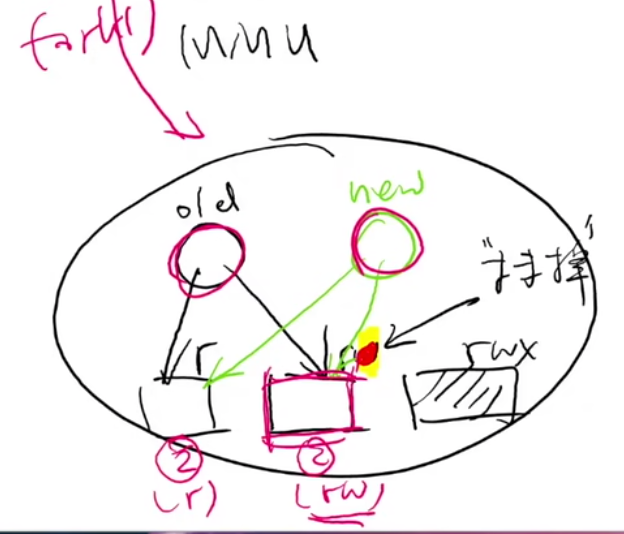 fork() MMU
old new
r r rwx
② ②
(r) (rw)